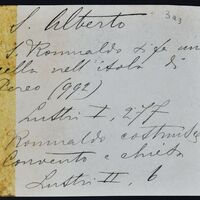 303
S. Alberto
S. Romualdo si fe un
cella nell'isola di
Pereo (992)
Lustri I, 277
Romualdo costruisc
Convento e chiesa
Lustri II, 6